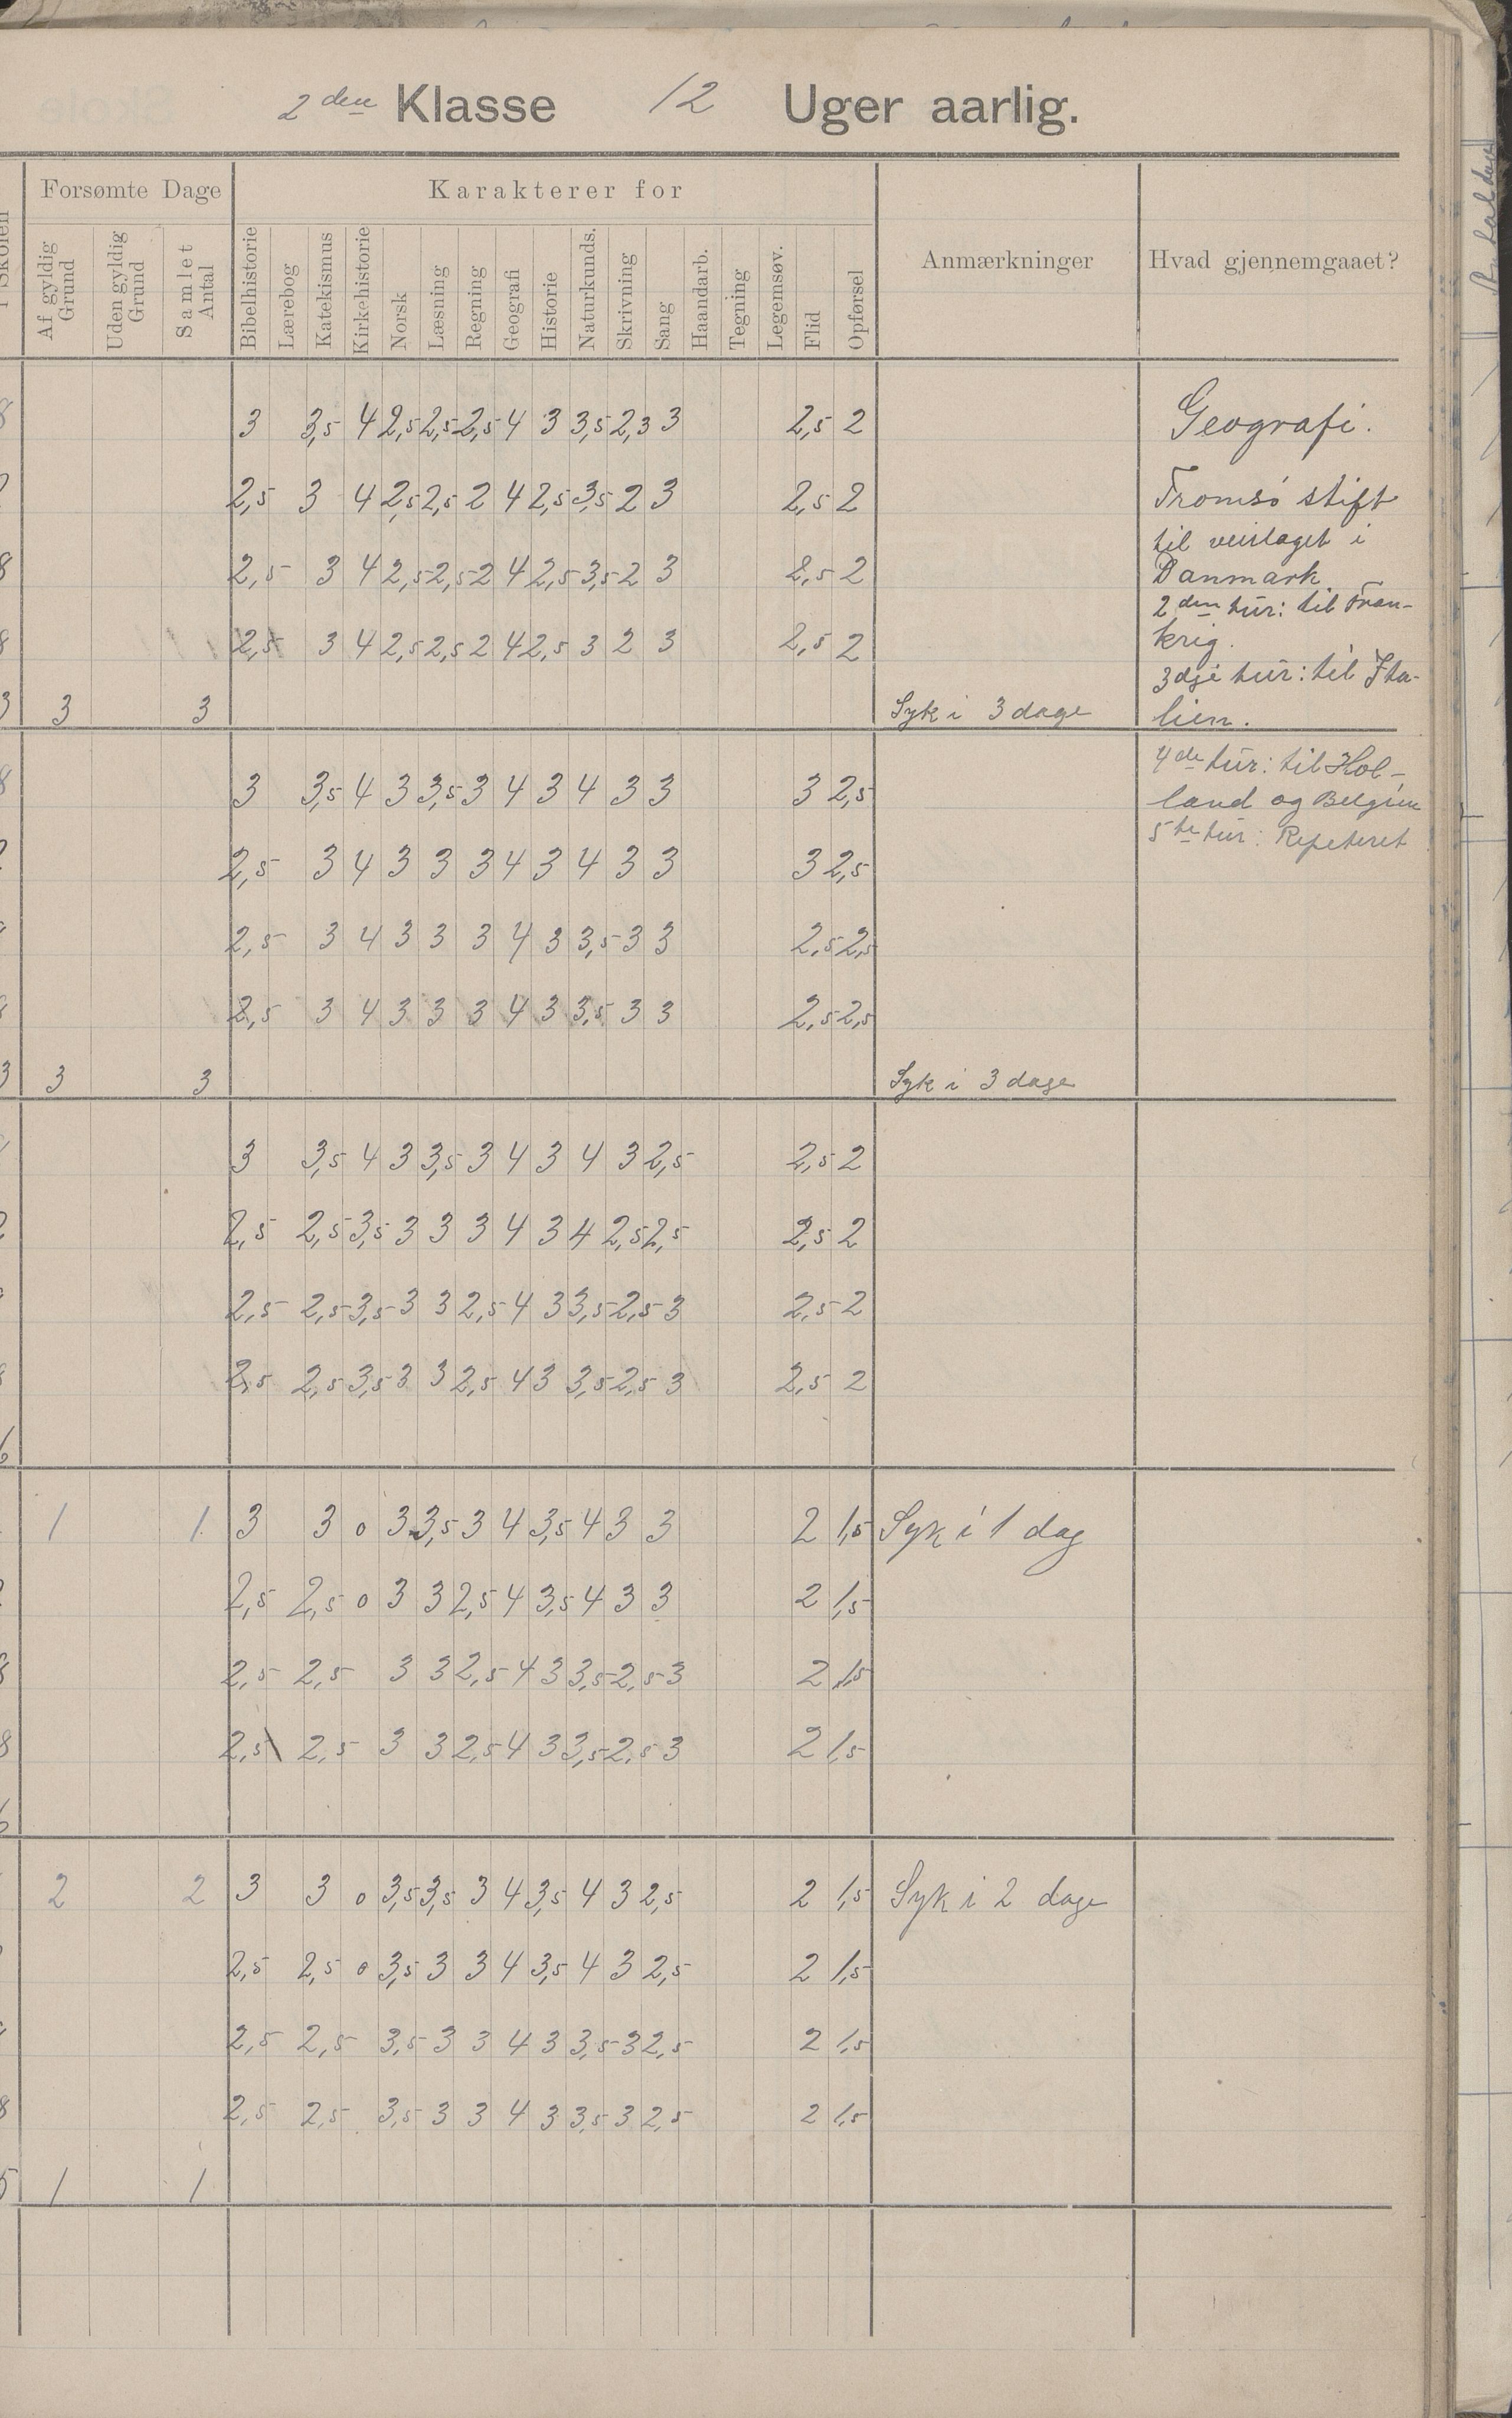 2den Klasse 12 Uger aarlig.
Forsømte Dage Karakterer for Anmærkninger Hvad gjennemgaaet?
Af gyldig Grund Uden gyldig Grund Samlet Antal Bibelhistorie Lærebog Katekismus Kirkehistorie Norsk Læsning Regning Geografi Historie Naturkunds. Skrivning Sang Haandarb. Tegning Legemsøv. Flid Opførsel
3 3,5 4 2,5 2,5 2,5 4 3 3,5 2,3 3 2,5 2 Geografi.
2,5 3 4 2,5 2,5 2 4 2,5 3,5 2 3 2,5 2 Tromsö stift
til veirlaget i
2,5 3 4 2,5 2,5 2 4 2,5 3,5 2 3 2,5 2 Danmark.
2den tur: til Fran-
2,5 3 4 2,5 2,5 2 4 2,5 3 2 3 2,5 2 krig.
3dje tur: til Ita-
3 3 Syk i 3 dage lien.
4de tur: til Hol-
3 3,5 4 3 3,5 3 4 3 4 3 3 3 2,5 land og Belgien
5te tur: Repeteret
2,5 3 4 3 3 3 4 3 4 3 3 3 2,5
2,5 3 4 3 3 3 4 3 3,5 3 3 2,5 2,5
2,5 3 4 3 3 3 4 3 3,5 3 3 2,5 2,5
3 3 Syk i 3 dage
3 3,5 4 3 3,5 3 4 3 4 3 2,5 2,5 2
2,5 2,5 3,5 3 3 3 4 3 4 2,5 2,5 2,5 2
2,5 2,5 3,5 3 3 2,5 4 3 3,5 2,5 3 2,5 2
2,5 2,5 3,5 3 3 2,5 4 3 3,5 2,5 3 2,5 2
1 1 3 3 0 3 3,5 3 4 3,5 4 3 3 2 1,5 Syk i 1 dag
2,5 2,5 0 3 3 2,5 4 3,5 4 3 3 2 1,5
2,5 2,5 3 3 2,5 4 3 3,5 2,5 3 2 1,5
2,5 2,5 3 3 2,5 4 3 3,5 2,5 3 2 1,5
2 2 3 3 0 3,5 3,5 3 4 3,5 4 3 2,5 2 1,5 Syk i 2 dage
2,5 2,5 0 3,5 3 3 4 3,5 4 3 2,5 2 1,5
2,5 2,5 3,5 3 3 4 3 3,5 3 2,5 2 1,5
2,5 2,5 3,5 3 3 4 3 3,5 3 2,5 2 1,5
1 1